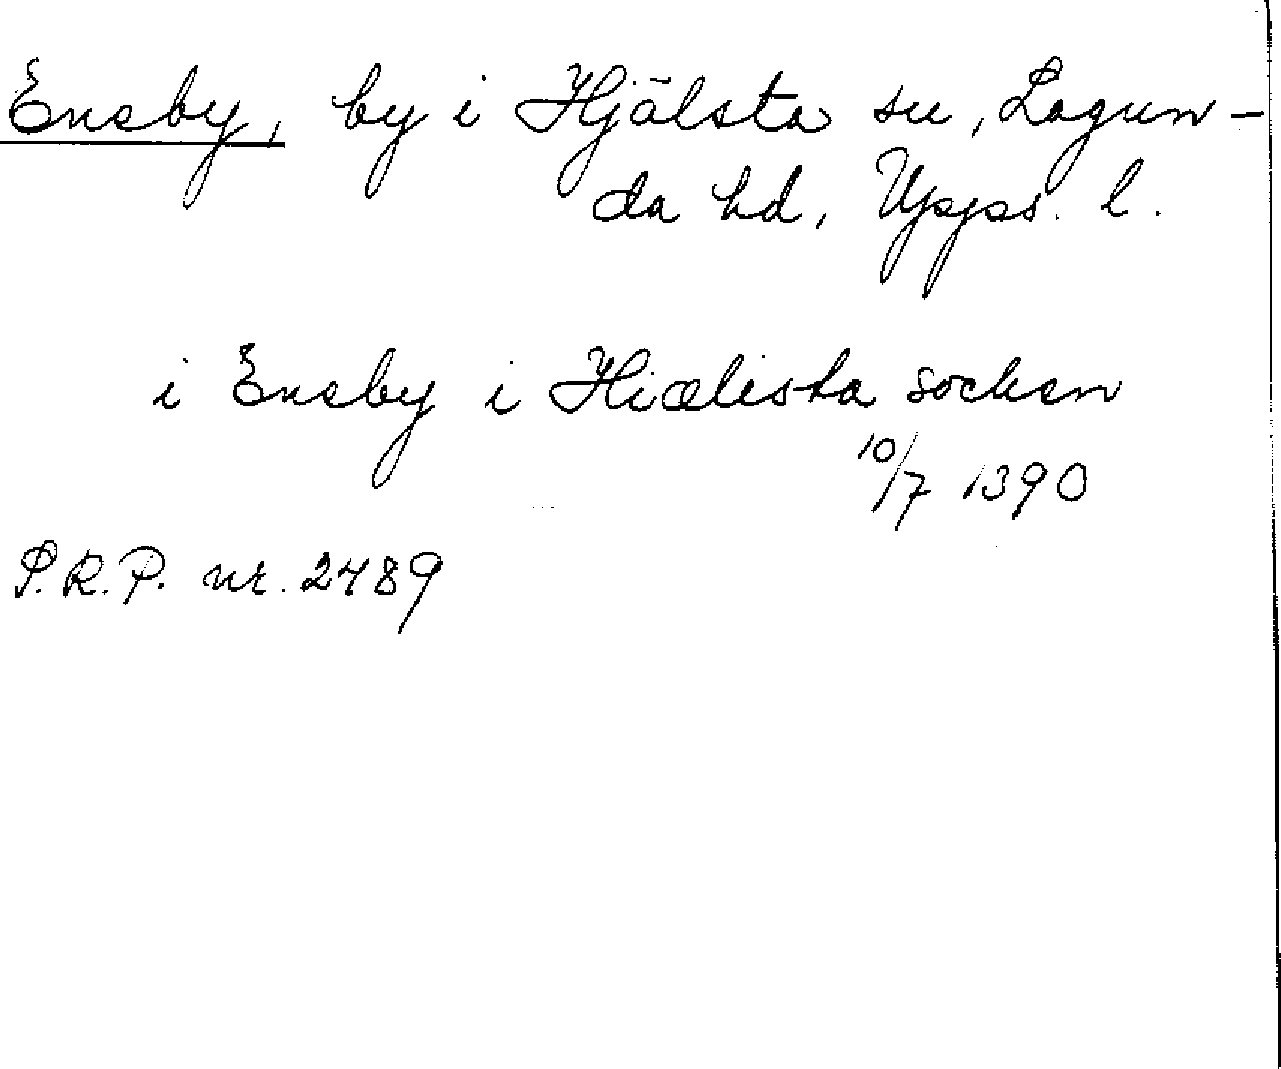 Eneby, by i Hjälsta sn, Lagun-
da hd, Upps. l.
i Eneby i Hiælista socken
10/7 1390
S.R.P. nr. 2489